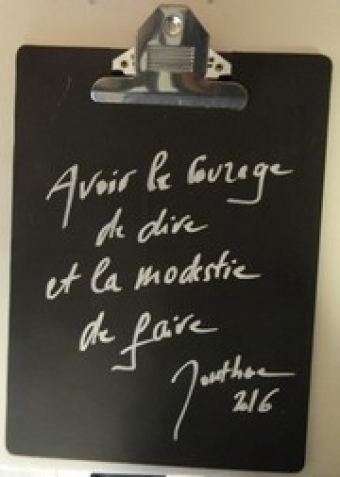 Avoir le courage
de dire
et la modestie
de faire
2016